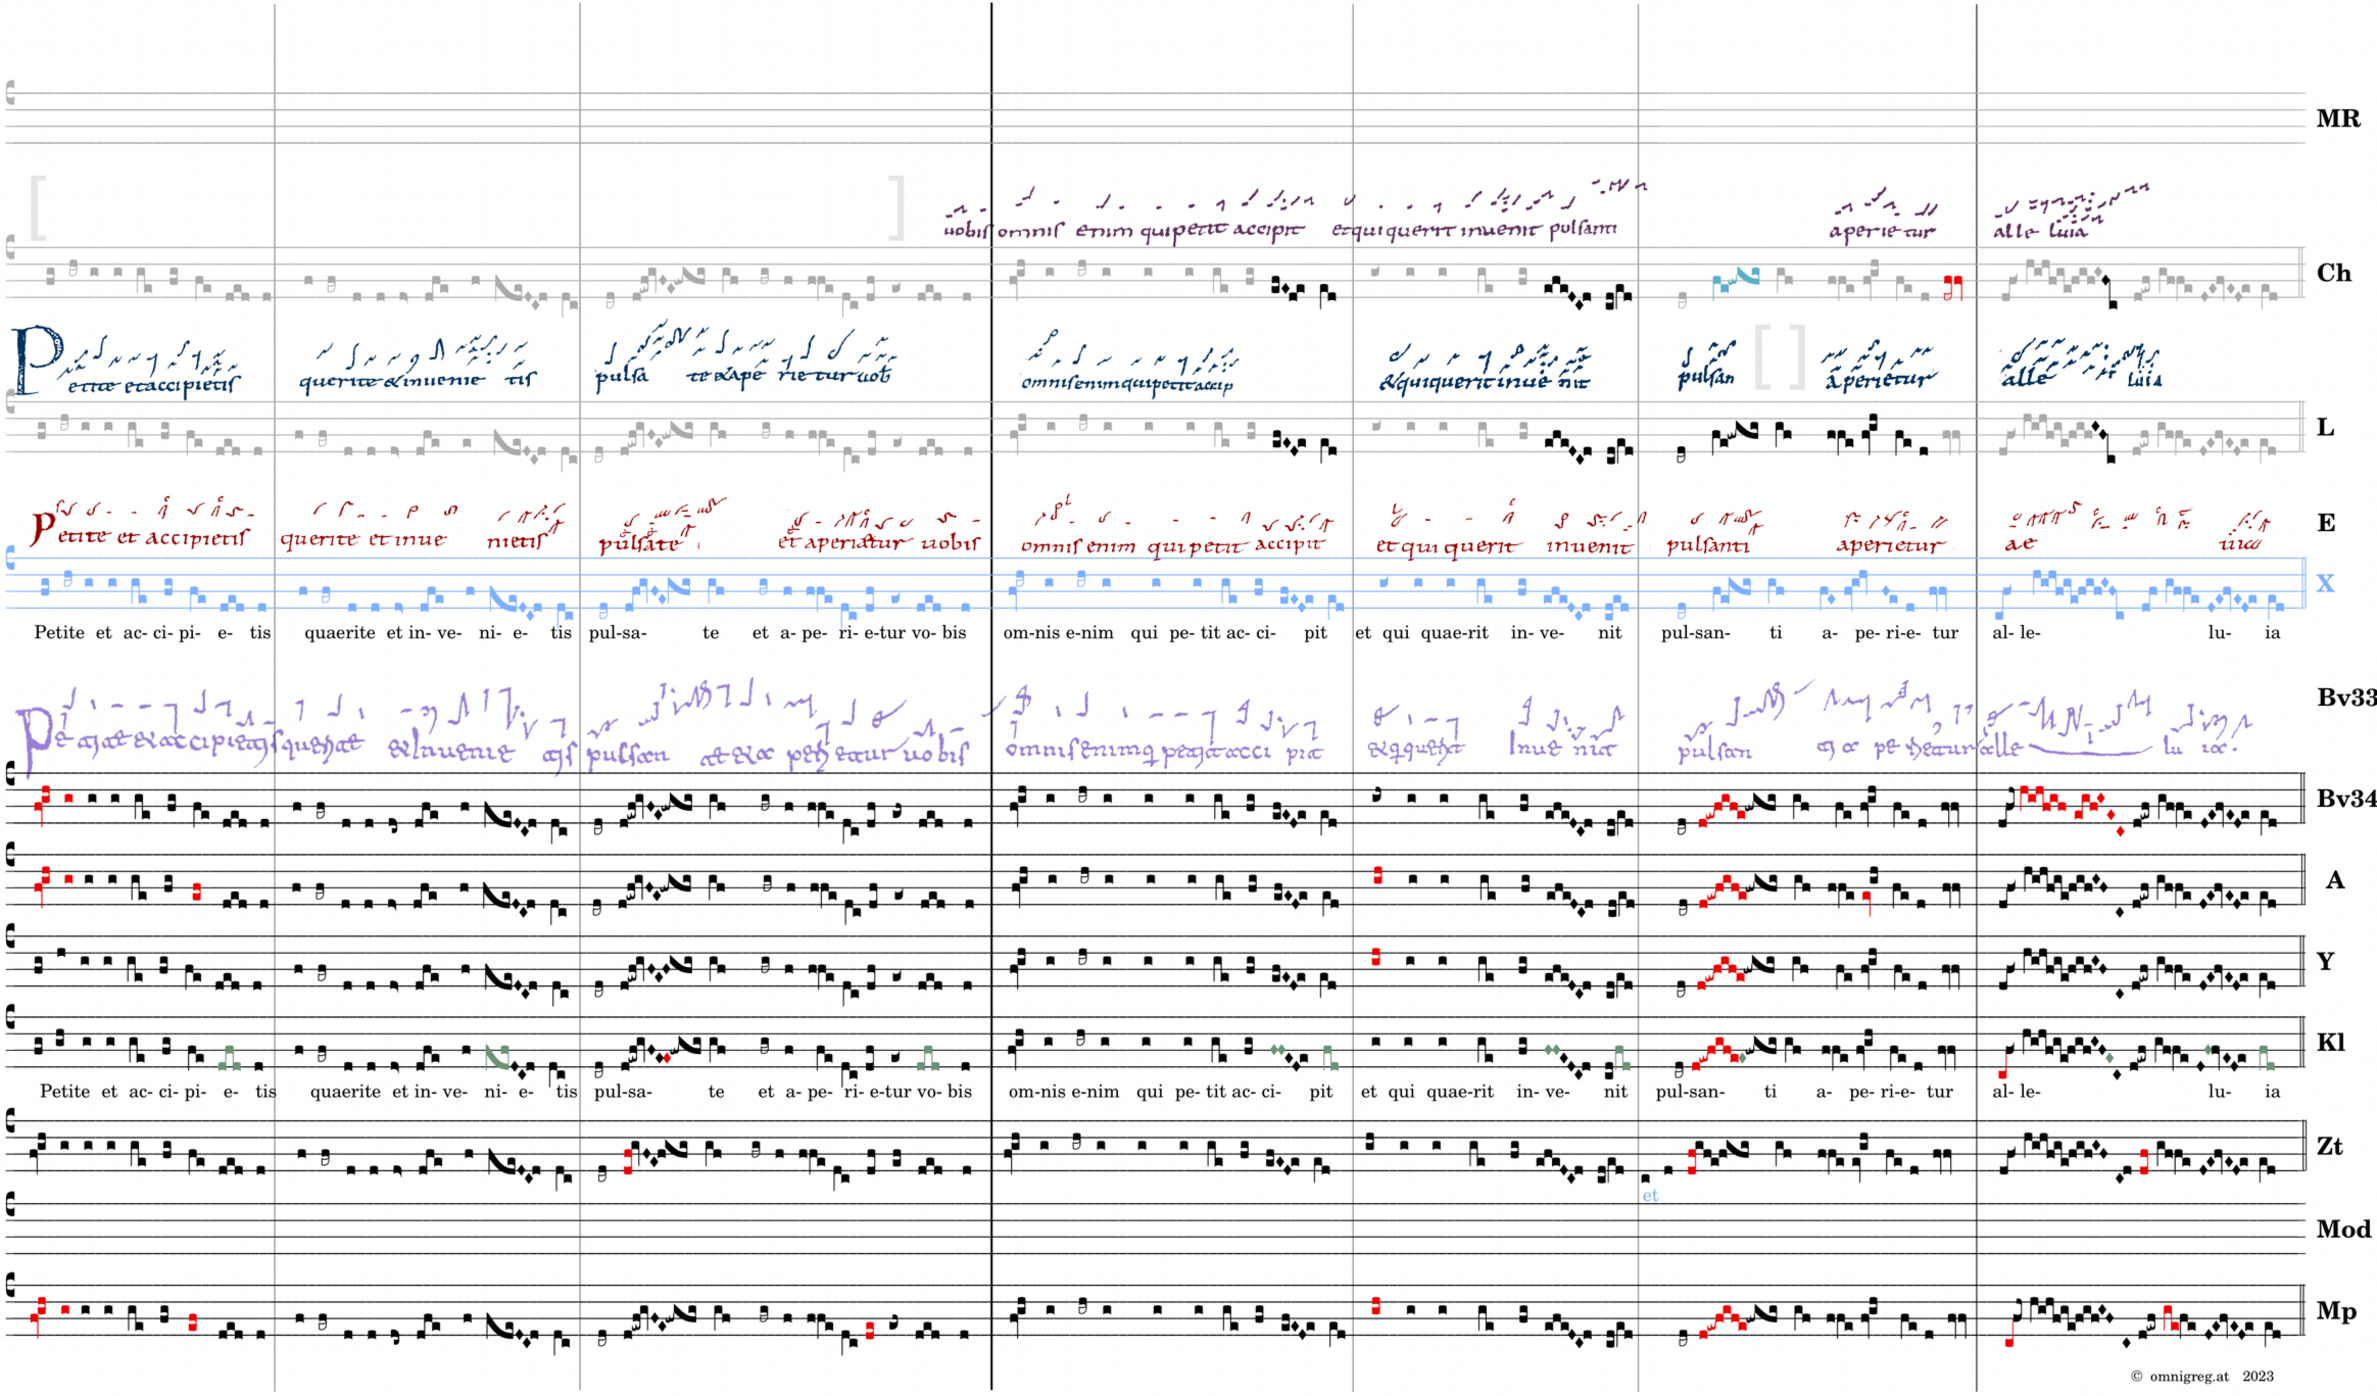 MR
uobis omnis enim qui petit accipit et qui querit inuenit pulsanti aperietur alle luia
Ch
Petite et accipietis querite & inuenie tis pulsa te & ape rietur uob omnis enim qui petit accip & qui querit inue nit pulsan aperietur alle luia
L
Petite et accipietis querite et inue nietis pulsate et aperietur uobis omnis enim qui petit accipit et qui querit inuenit pulsanti aperietur ae uia
E
X
Petite et ac- ci- pi- e- tis quaerite et in- ve- ni- e- tis pul-sa- te et a- pe- ri- e-tur vo- bis om-nis e-nim qui pe- tit ac- ci- pit et qui quae-rit in- ve- nit pul-san- ti a- pe- ri-e- tur al- le- lu- ia
Bv33
Bv34
A
Y
Kl
Petite et ac- ci- pi- e- tis quaerite et in- ve- ni- e- tis pul-sa- te et a- pe- ri- e-tur vo- bis om-nis e-nim qui pe- tit ac- ci- pit et qui quae-rit in- ve- nit pul-san- ti a- pe- ri-e- tur al- le- lu- ia
Zt
et
Mod
Mp
© omnigreg.at 2023